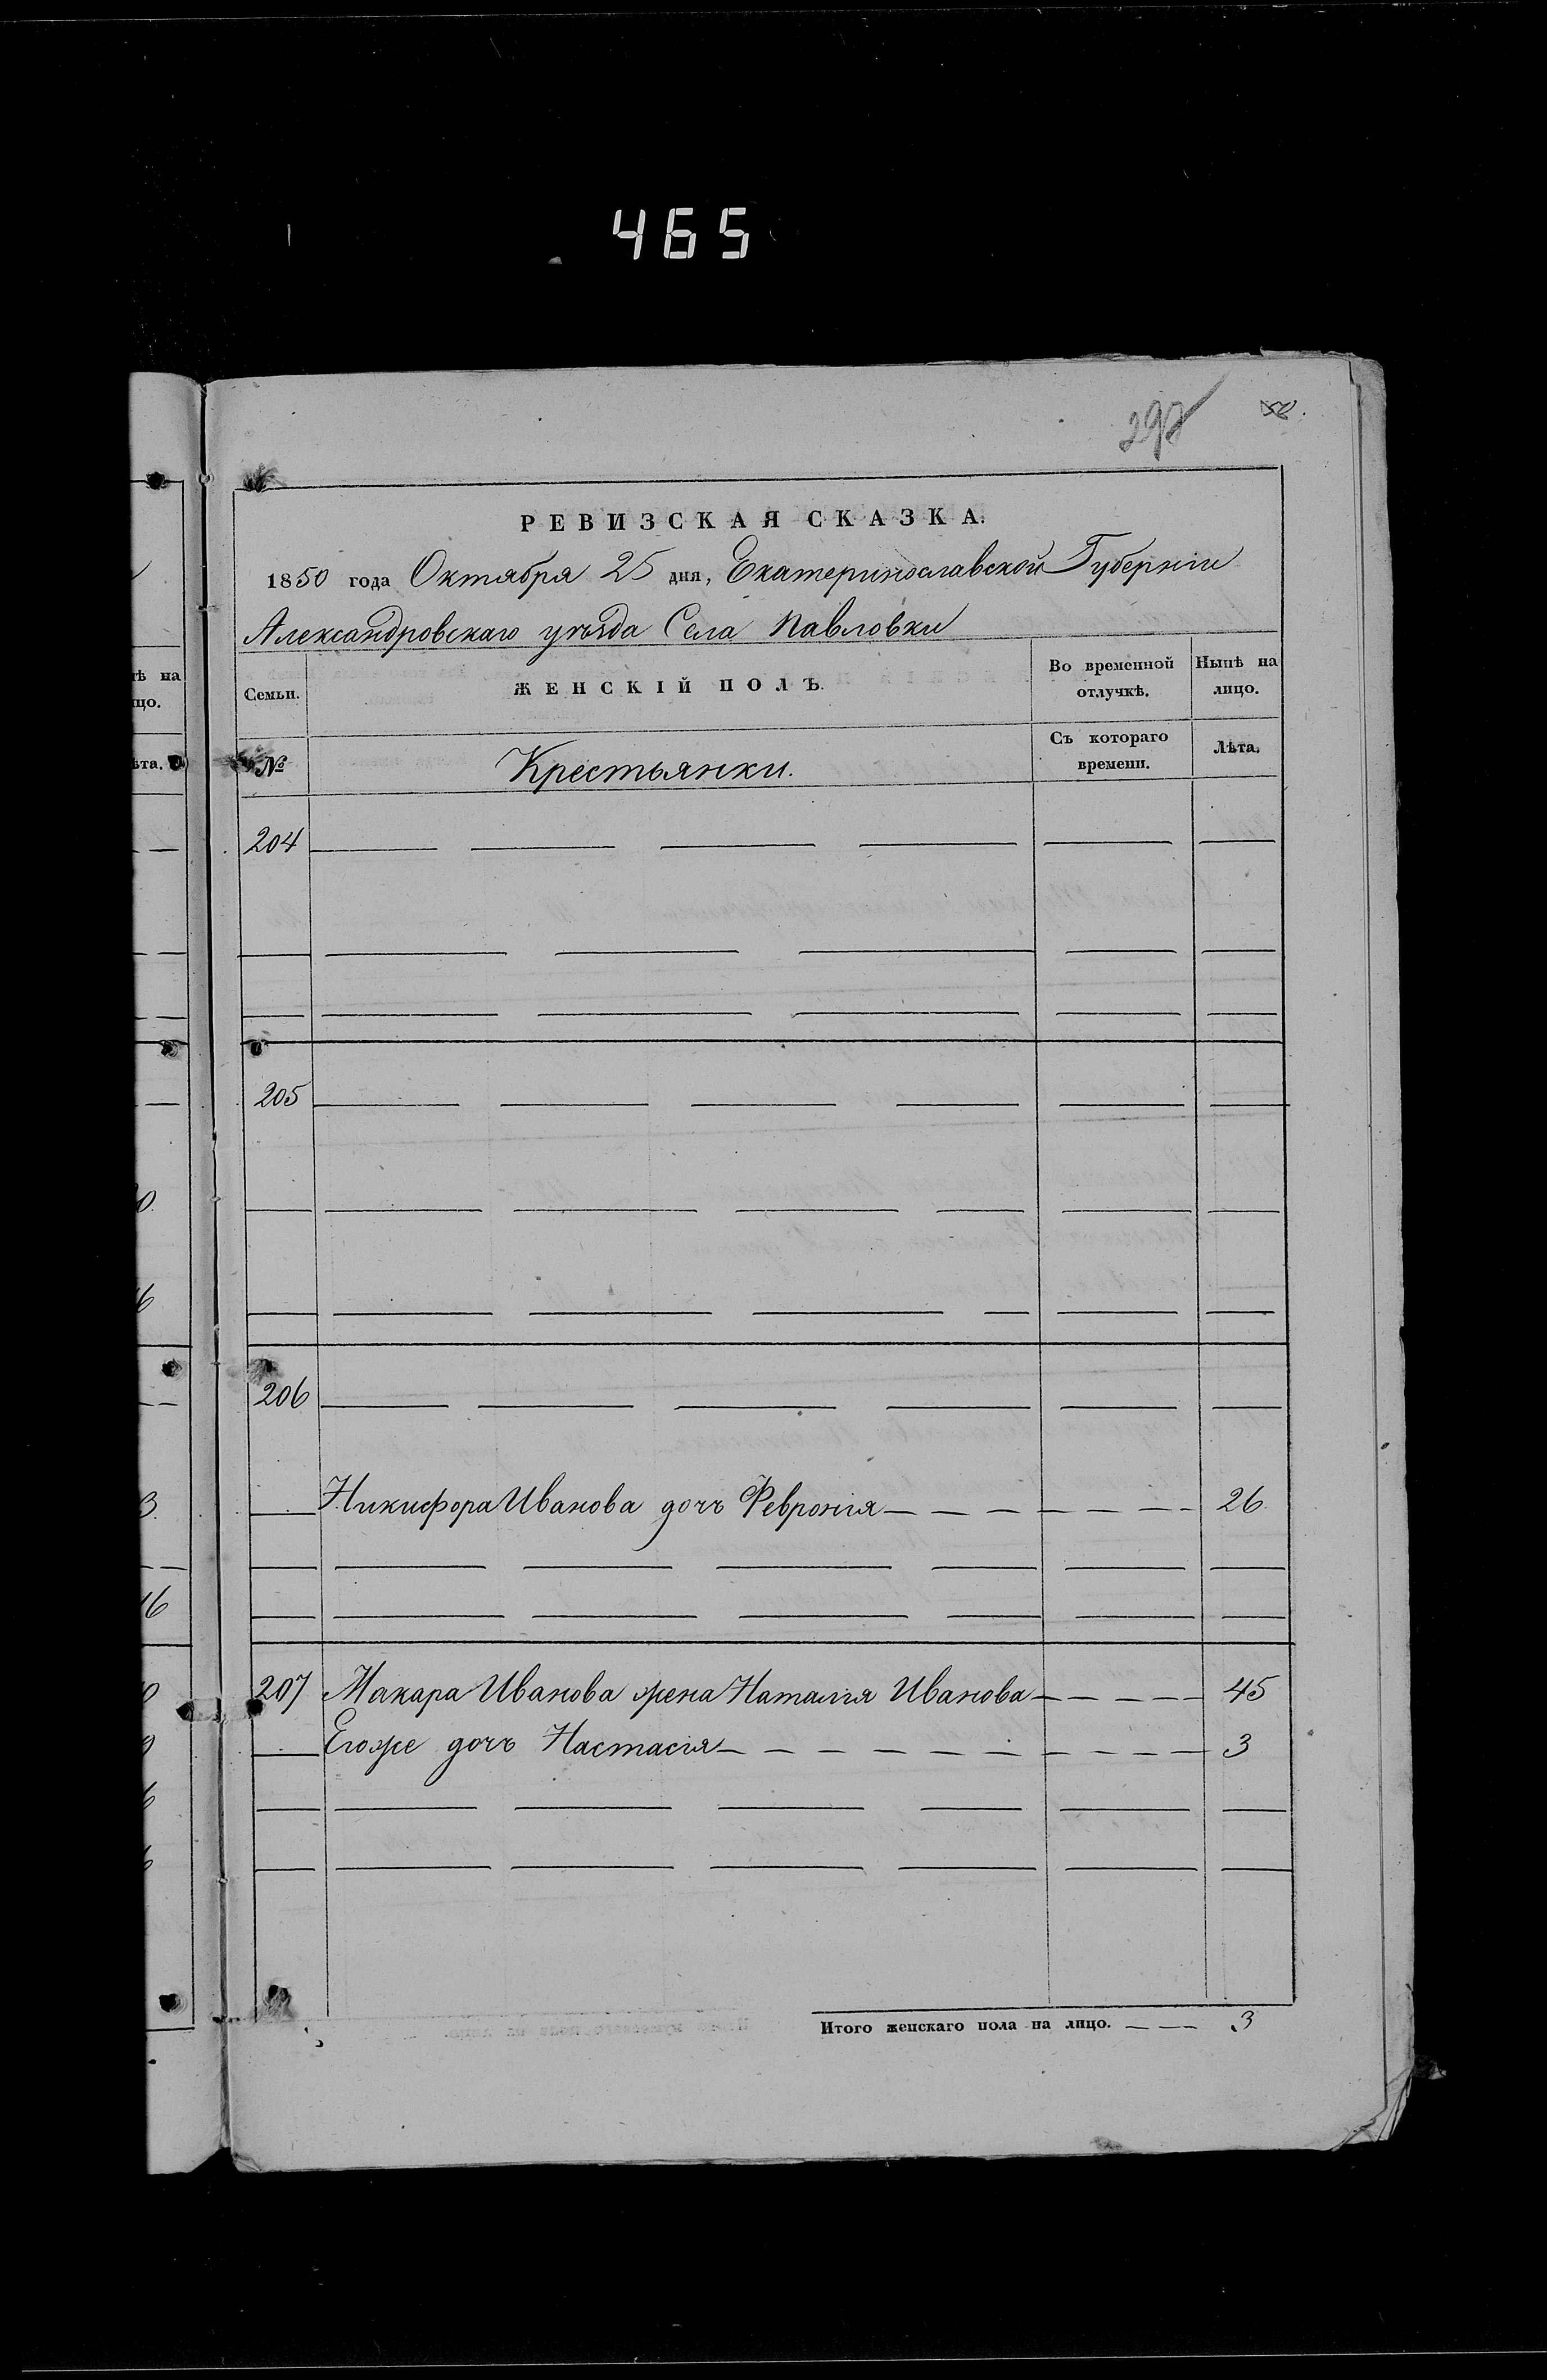 465
298
РЕВИЗСКАЯ СКАЗКА.
1850 года Октября 25 дня, Екатеринославской Губерніи
Александровскаго уѣзда Села Павловки
Семьи. ЖЕНСКІЙ ПОЛЪ. Во временной отлучкѣ. Нынѣ на лицо.
№ Крестьянки. Съ котораго времени. Лѣта.
204
205
206
Никифора Иванова дочь Февронія 26
207 Макара Иванова жена Наталія Иванова 45
Егоже дочь Настасія 3
Итого женскаго пола на лицо. 3